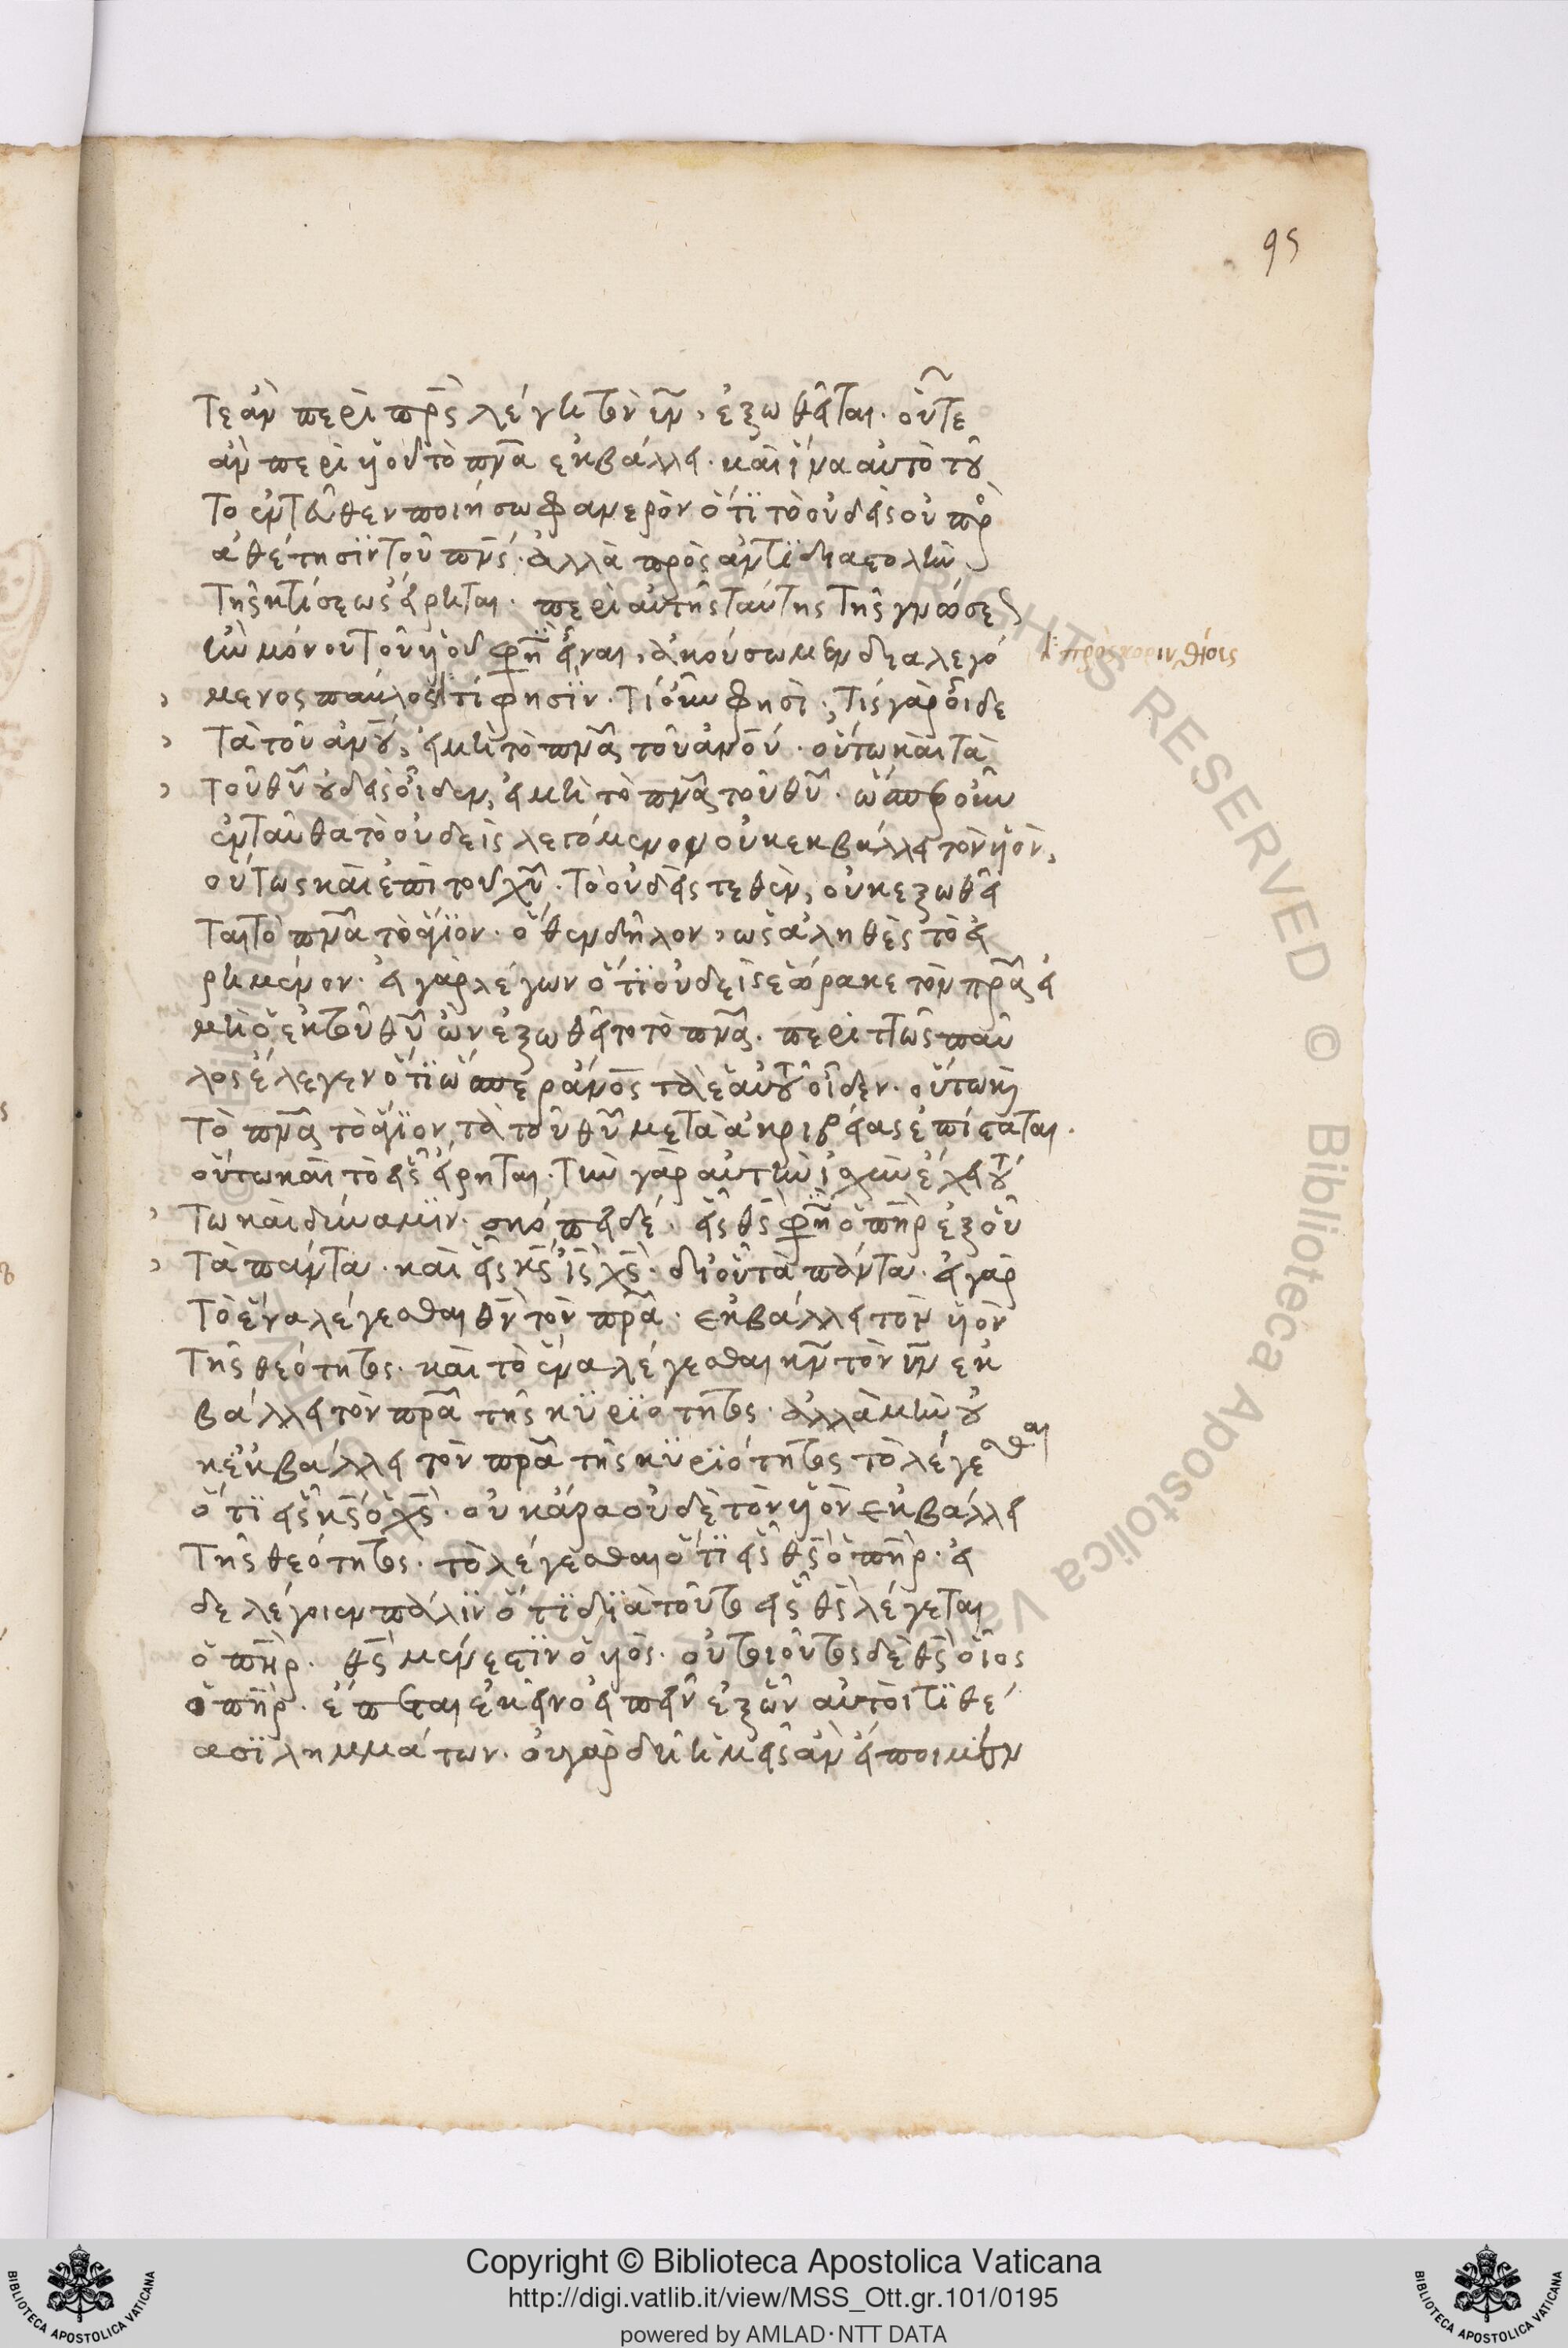 95
τε ἂν περὶ πρ̅ς λέγη τὸν υ̅ν, ἐξωθεῖται. οὔτε
ἂν περὶ υἱοῦ τὸ πν̅α ἐκβάλλει. καὶ ἵνα αὐτὸ τοῦ
το ἐντεῦθεν ποιήσω φανερὸν ὅτϊ τὸ οὐδεὶς οὐ πρὸ
ἀθέτησϊν τοῦ πν̅ς. ἀλλὰ πρὸς ἀντϊδιαστολὴν
τῆς κτίσεως εἴρηται. περὶ αὐτῆς ταύτης τῆς γνώσεως
ἣν μόνου τοῦ υἱοῦ φη̅ εἶναι, ἀκούσωμεν διαλεγό
μενος παῦλος τί φησϊν. τί οὖν φησὶ. τίς γὰρ οἶδε
τὰ τοῦ ἀν̅ου, εἰ μὴ τὸ πν̅α τοῦ ἀν̅ου. οὕτω καὶ τὰ
τοῦ θ̅υ οὐδεὶς οἶδεν, εἰ μὴ τὸ πν̅α τοῦ θ̅υ. ὥσπερ οὖν
ἐνταῦθα τὸ οὐδεὶς λεγόμενον οὐκ ἐκβάλλει τὸν υἱὸν,
οὕτως καὶ ἐπὶ τοῦ χ̅υ. τὸ οὐδεὶς τεθὲν, οὐκ ἐξωθεῖ
ται τὸ πν̅α τὸ ἅγϊον. ὅθεν δῆλον, ὡς ἀληθὲς τὸ εἰ
ρημένον. εἰ γὰρ λέγων ὅτϊ οὐδεὶς ἑώρακε τὸν πρ̅α εἰ
μὴ ὁ ἐκ τοῦ θ̅υ ὢν ἐξωθεῖτο τὸ πν̅α. περιττῶς παῦ
λος ἔλεγεν ὅτϊ ὥσπερ ἀν̅ος τὰ ἑαυτοῦ οἶδεν. οὕτω καὶ
τὸ πν̅α τὸ ἅγϊον τὰ τοῦ θ̅υ μετὰ ἀκριβείας ἐπίσταται.
οὕτω καὶ τὸ εἷς εἴρηται. τὴν γὰρ αὐτὴν ἰσχὺν ἔχει τού
τω καὶ δύναμϊν. σκόπει δέ. εἷς θ̅ς φη̅ ὁ πη̅ρ ἐξ οὗ
τὰ πάντα. καὶ εἷς κ̅ς ι̅ς χ̅ς. δι οὗ τὰ πάντα. εἰ γὰρ
τὸ ἕνα λέγεσθαι θ̅ν τὸν πρ̅α. ἐκβάλλει τὸν υἱὸν
τῆς θεότητος. καὶ τὸ ἕνα λέγεσθαι κ̅ν τὸν υ̅ν ἐκ
βάλλει τὸν πρ̅α τῆς κϋρϊότητος. ἀλλὰ μὴν οὐ
κ ἐκβάλλει τὸν πρ̅α τῆς κϋρϊότητος τὸ λέγεσθαι
ὅτϊ εἷς κ̅ς ὁ χ̅ς. οὐκ ἄρα οὐδὲ τὸν υἱὸν ἐκβάλλει
τῆς θεότητος. τὸ λέγεσθαι ὅτϊ εἷς θ̅ς ὁ πη̅ρ. εἰ
δε λέγοιεν πάλϊν ὅτϊ διὰ τοῦτο εἷς θ̅ς λέγεται
ὁ πη̅ρ. θ̅ς μέν ἐστϊν ὁ υἱὸς. οὐ τοιοῦτος δὲ θ̅ς οἷος
ὁ πη̅ρ. ἕπεται ἐκεῖνο εἰπεῖν ἐξ ὧν αὐτοὶ τϊθέ
ασϊ λημμάτων. οὐ γὰρ δὴ ἡμεῖς ἂν εἴποιμεν
α πρὸς κορινθίοις
Copyright © Biblioteca Apostolica Vaticana
http://digi.vatlib.it/view/MSS_Ott.gr.101/0195
powered by AMLAD·NTT DATA